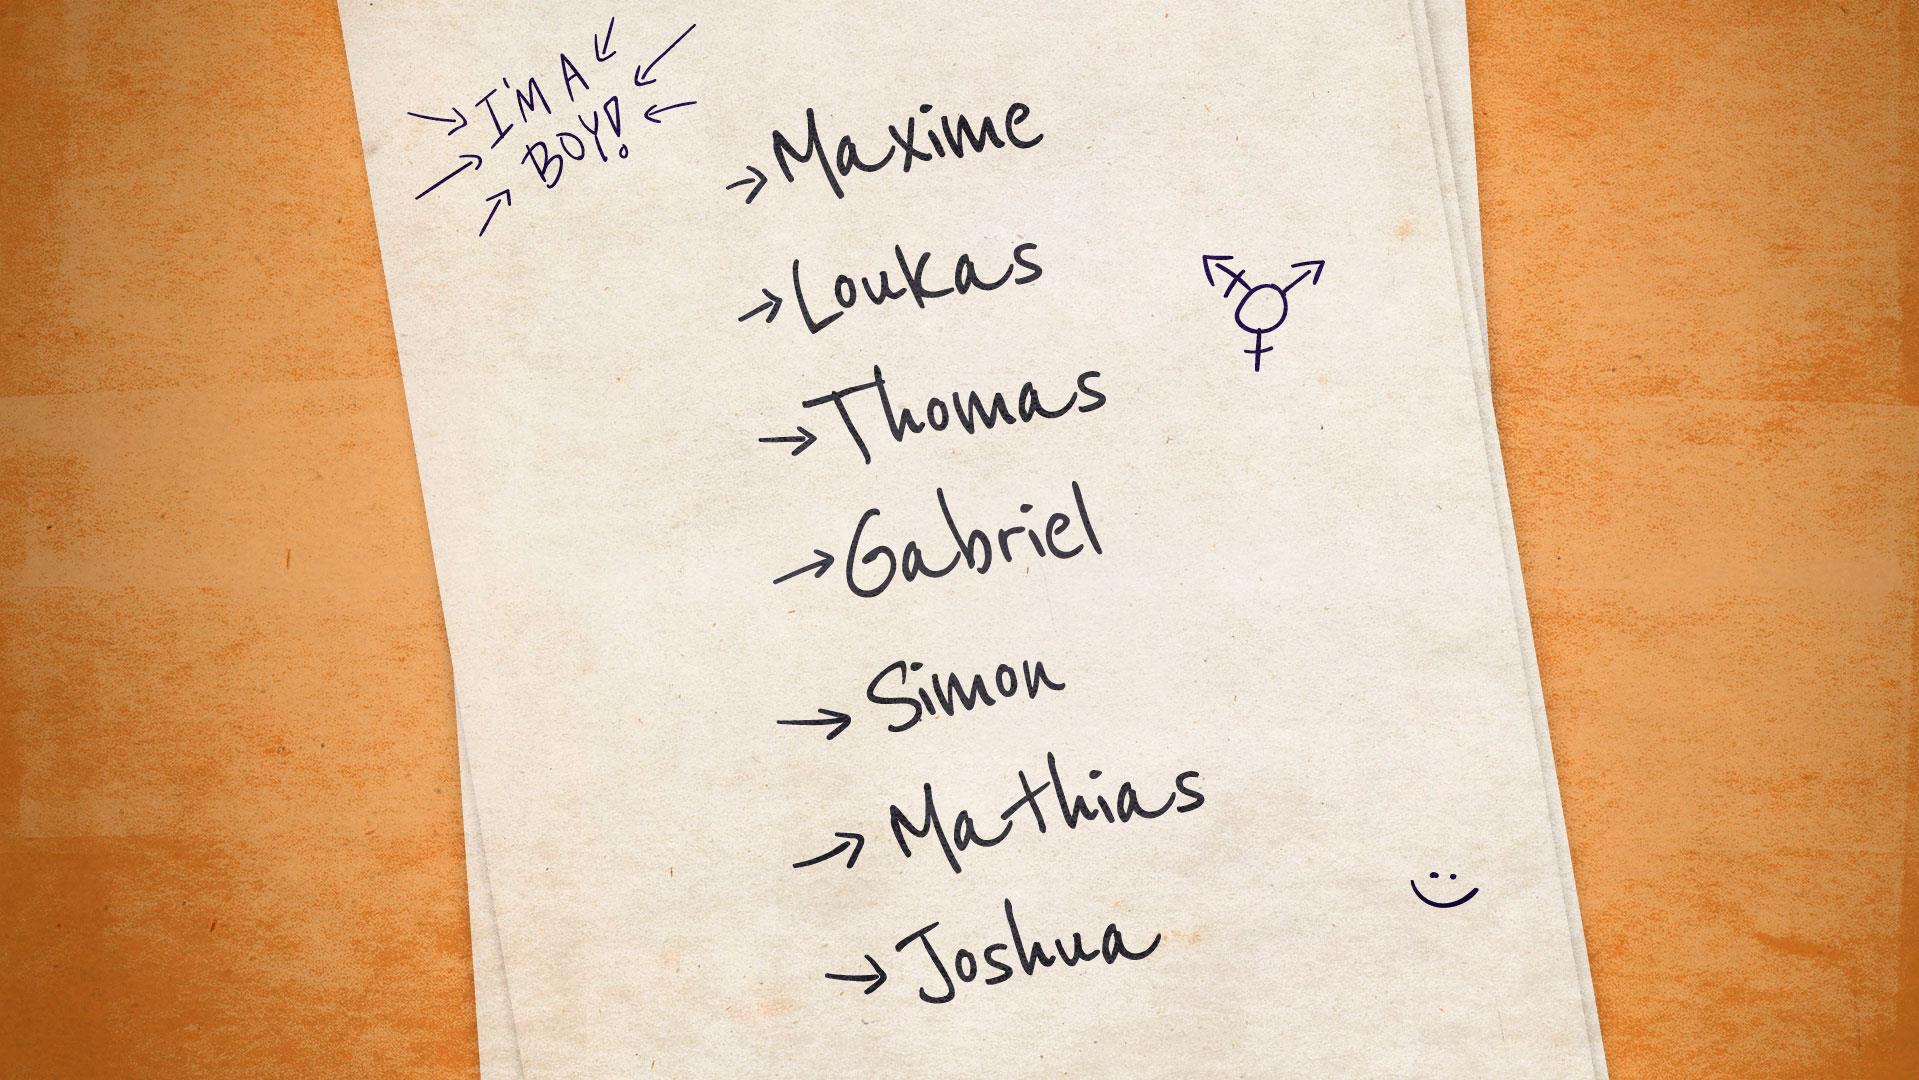 I'M A
BOY!
Maxime
Loukas
Thomas
Gabriel
Simon
Mathias
Joshua